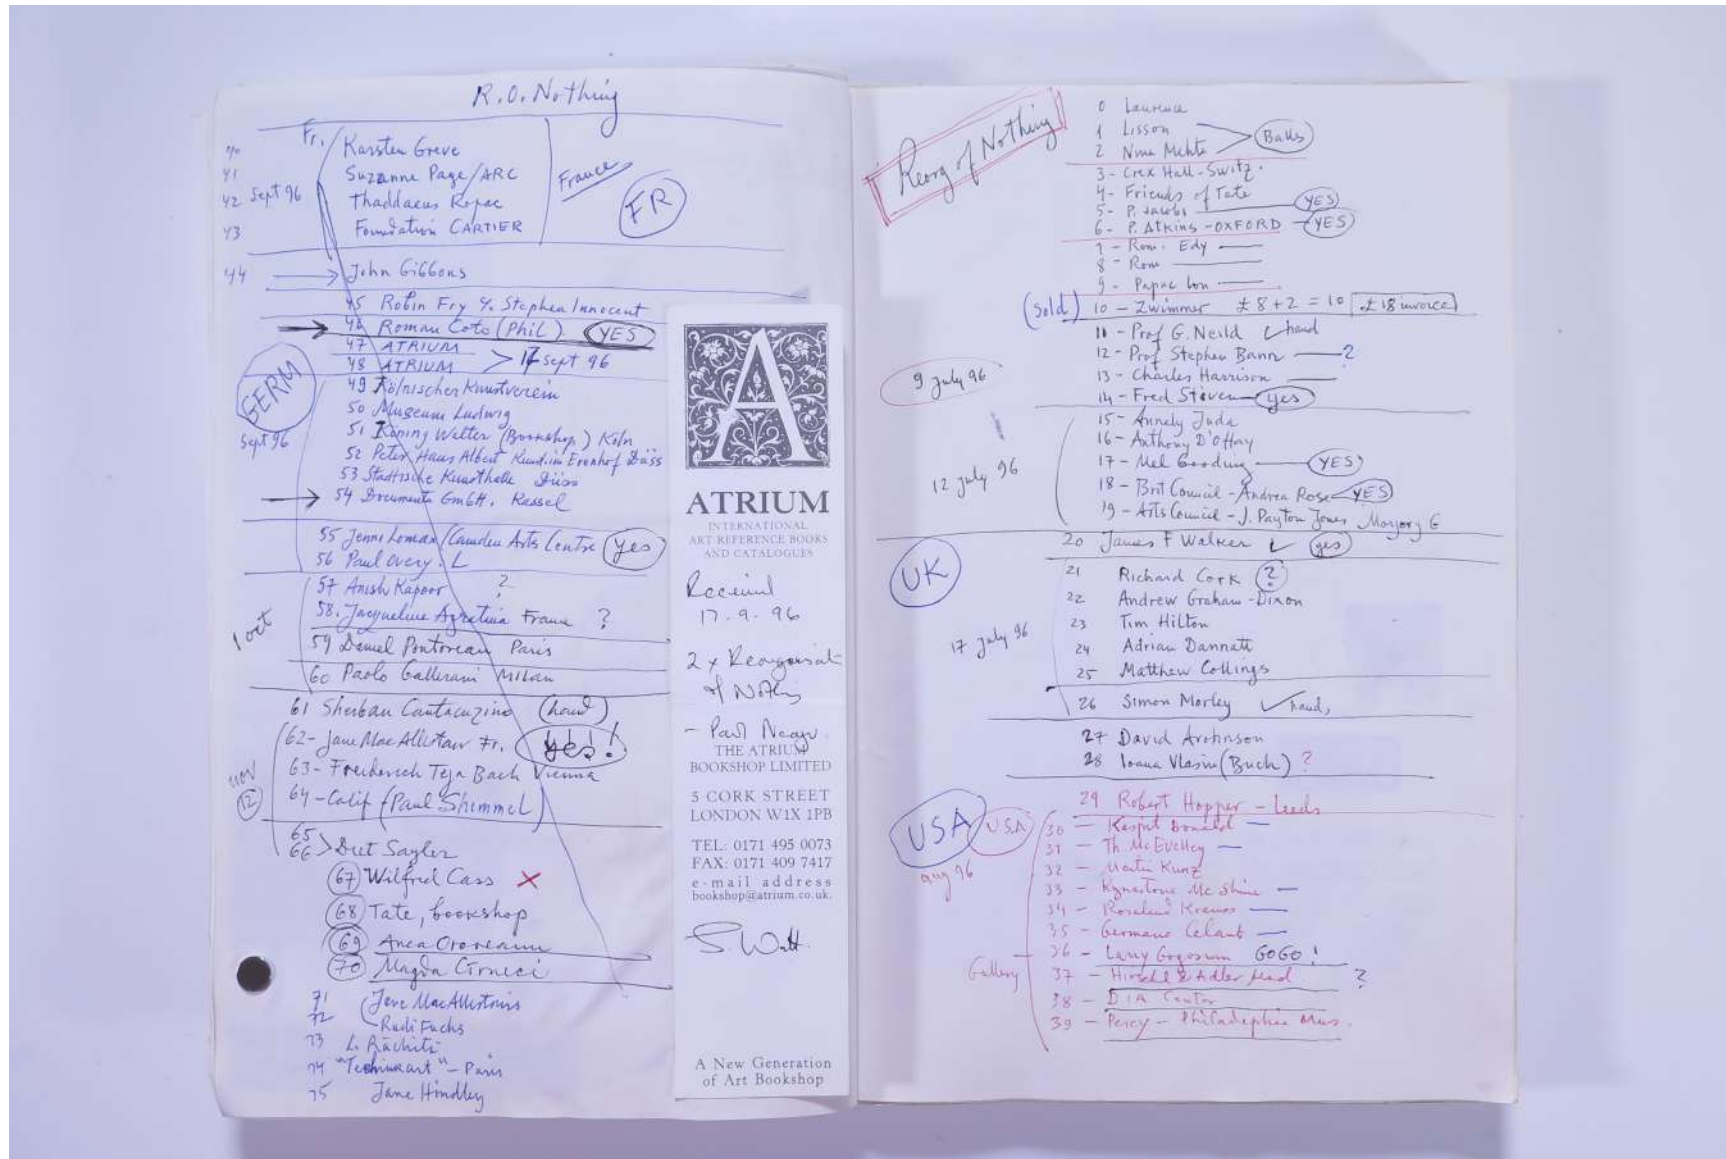 R.O. Nothing
Fr.
40 Karsten Greve
41 Suzanne Page/ARC
42 Sept 96 Thaddaeus Ropac
43 Foundation CARTIER
France
FR
44 John Gibbons
45 Robin Fry % Stephen Innocent
46 Roman Coto (Phil) YES
47 ATRIUM
48 ATRIUM > 17 sept 96
GERM
Sept 96
49 Kölnischer Kunstverein
50 Museum Ludwig
51 König Walter (Bookshop) Köln
52 Peter Haus Albert
53 Stadtische Kunsthalle Düss
54 Documenta GmbH. Kassel
55 Jenni Lomax/Camden Arts Centre yes
56 Paul Overy. L
1 oct
57 Anish Kapoor ?
58. Jacqueline France ?
59 Daniel Paris
60 Paolo Gallerani Milan
61 Sherban Cantacuzino (hand)
nov
12
62- Jane MacAllistair Fr. yes!
63- Freiderich Teja Bach Vienna
64- Calif (Paul Shimmel)
65
66 > Diet Sayler
67 Wilfred Cass X
68 Tate, bookshop
69 Anca Oroveanu
70 Magda Cirneci
71 Jane MacAllistair
72 Rudi Fuchs
73 L. Rachiti
74 "Technikart" - Paris
75 Jane Hindley
A
ATRIUM
INTERNATIONAL
ART REFERENCE BOOKS
AND CATALOGUES
Received
17.9.96
2 x Reorganisati
of Nothing
- Paul Neagu.
THE ATRIUM
BOOKSHOP LIMITED
5 CORK STREET
LONDON W1X 1PB
TEL: 0171 495 0073
FAX: 0171 409 7417
e-mail address
bookshop@atrium.co.uk.
S. Watt.
A New Generation
of Art Bookshop
Reorg of Nothing
0 Laurence
1 Lisson
2 Nina Mehta
Balls
3- Crex Hall-Switz.
4- Friends of Tate
5- P. Jacobs YES
6- P. Atkins - OXFORD YES
7- Rom. Edy
8- Rom
9- Papac Lon
(Sold) 10 - Zwimmer £8+2=10 £18 invoice
11 - Prof G. Neild hand
12 - Prof Stephen Bann ?
9 July 96
13 - Charles Harrison
14 - Fred Steven yes
15 - Annely Juda
16 - Anthony D'Offay
17 - Mel Gooding YES
12 July 96
18 - Brit Council - Andrea Rose YES
19 - Arts Council - J. Payton Jones Marjory G
20 James F Walker yes
UK
21 Richard Cork ?
22 Andrew Graham-Dixon
23 Tim Hilton
17 July 96
24 Adrian Dannatt
25 Matthew Collings
26 Simon Morley hand,
27 David Arohnson
28 Ioana Vlasiu (Buch) ?
29 Robert Hopper - Leeds
USA
USA
aug 96
30 - Kaspit Donald
31 - Th. McEvilley
32 - Martin Kunz
33 - Kynastone Mc Shine
34 - Rosalind Krauss
35 - Germano Celant
36 - Larry Gogosian GOGO!
Gallery
37 - Hirschl & Adler ?
38 - DIA Center
39 - Percy - Philadelphia Mus.